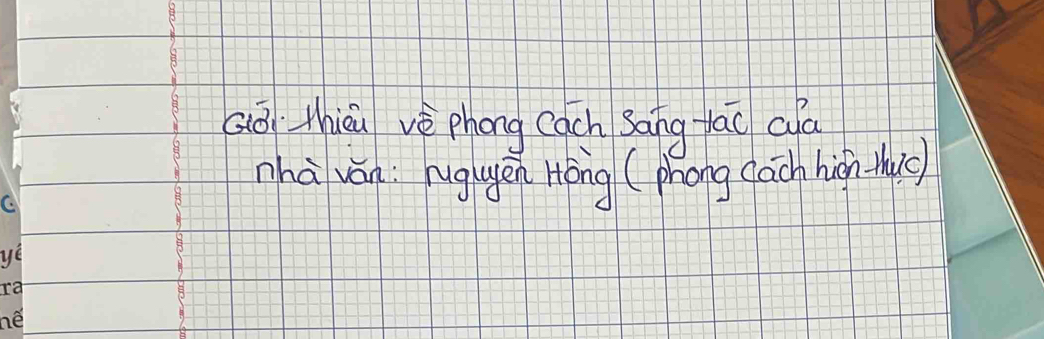 Giới thiệu về phong cách sáng tác của
nhà văn: Nguyên Hồng (phong cách hiện thực)
C
yê
ra
nế